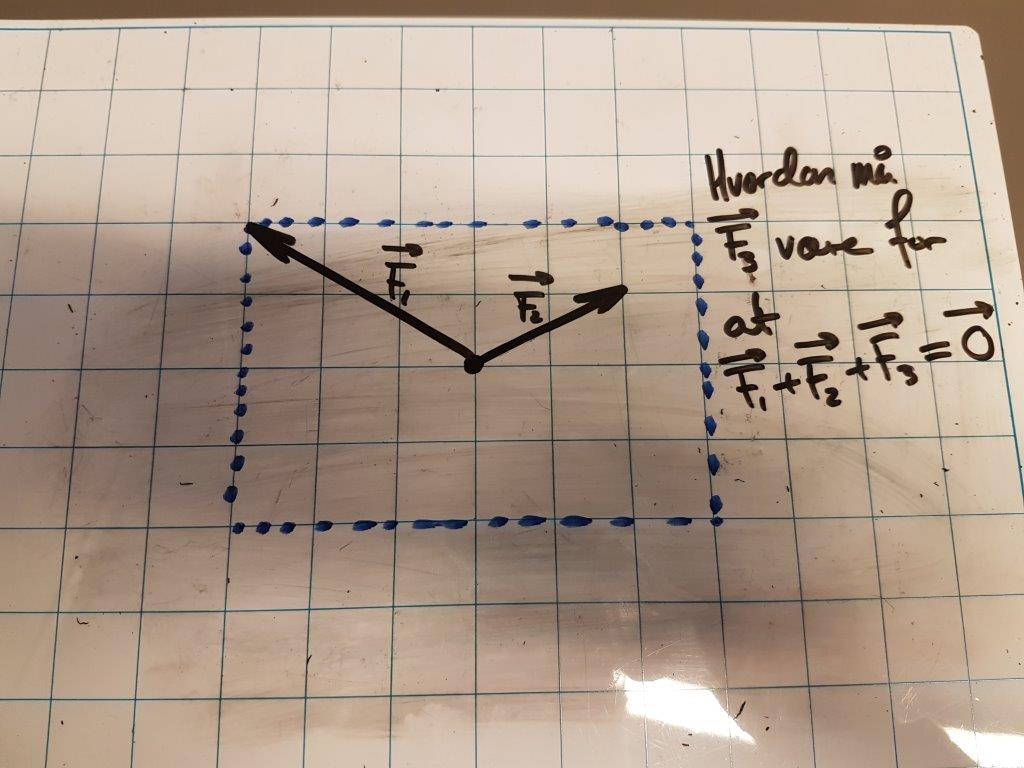 F₁
F₂
Hvordan må
F₃ være for
at
F₁ + F₂ + F₃ = 0